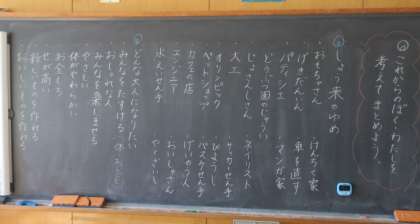 これからのぼく・わたしを
考えてまとめよう。
しょう来のゆめ
おもちゃさん
けんちく家
げきだんいん
車を直す
パティシエ
マンガ家
どうぶつ園のじゅうい
じょさんしさん
ネイリスト
大工
サッカーせん手
オリンピック
びようし
ペットショップ
バスケせん手
カフェの店
げいのう人
エンジニア
おいしゃさん
水えいせん手
どんな人になりたい
みんなをたすける
おしゃれな人
みんなを楽しませる
やさしい
体がやわらかい
お金もち
せが高い
おいしいものを作れる